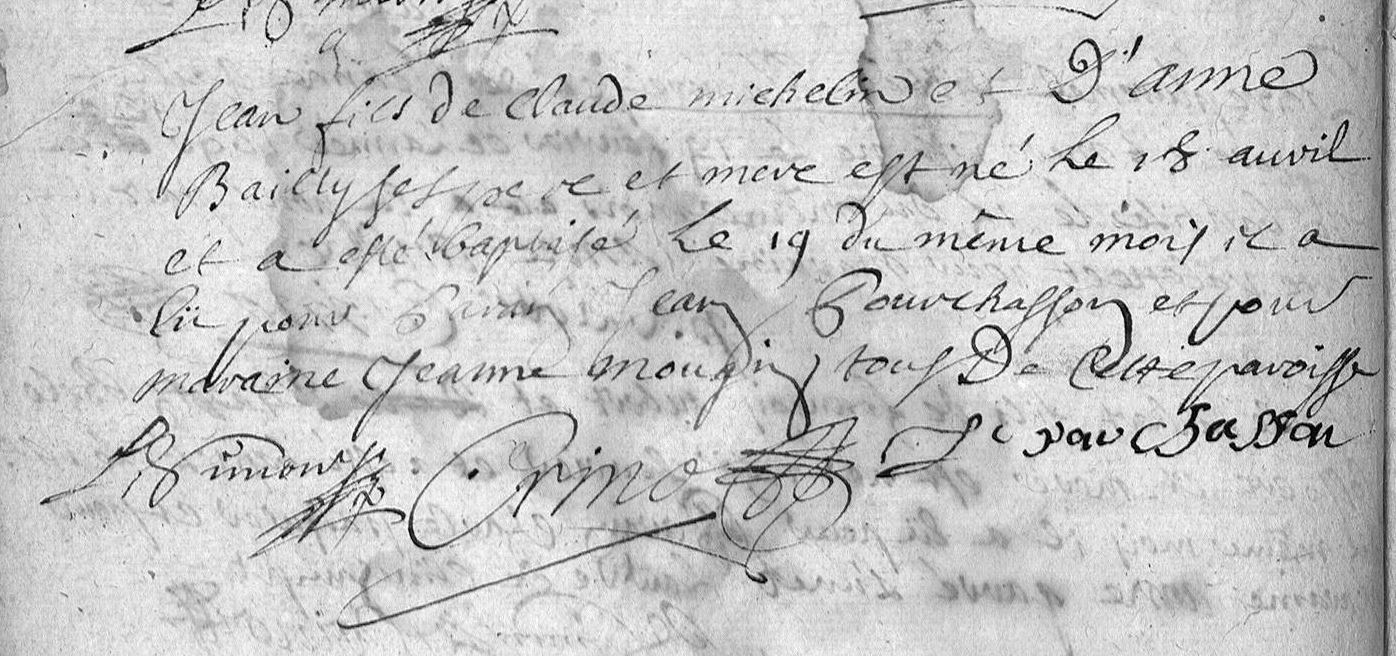 Jean fils de Claude michelin et D'anne
Bailly ses pere et mere est né Le 18 avvril
et a esté baptisé Le 19 du même mois il a
Eü pour Parain Jean Pourchasson et pour
maraine Jeanne mougin tous De Cette paroisse
Simon